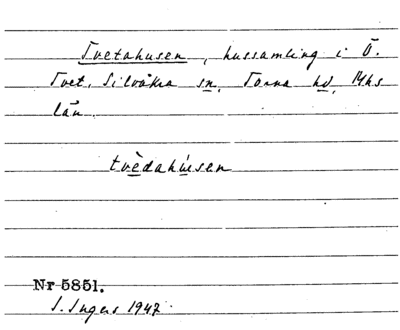 Tvetahusen, hussamling i Ö.
Tvet, Silvåkra sn, Torna hd, Mhs
län.
tvèdahùsen
Nr 5851.
I. Ingers 1947.